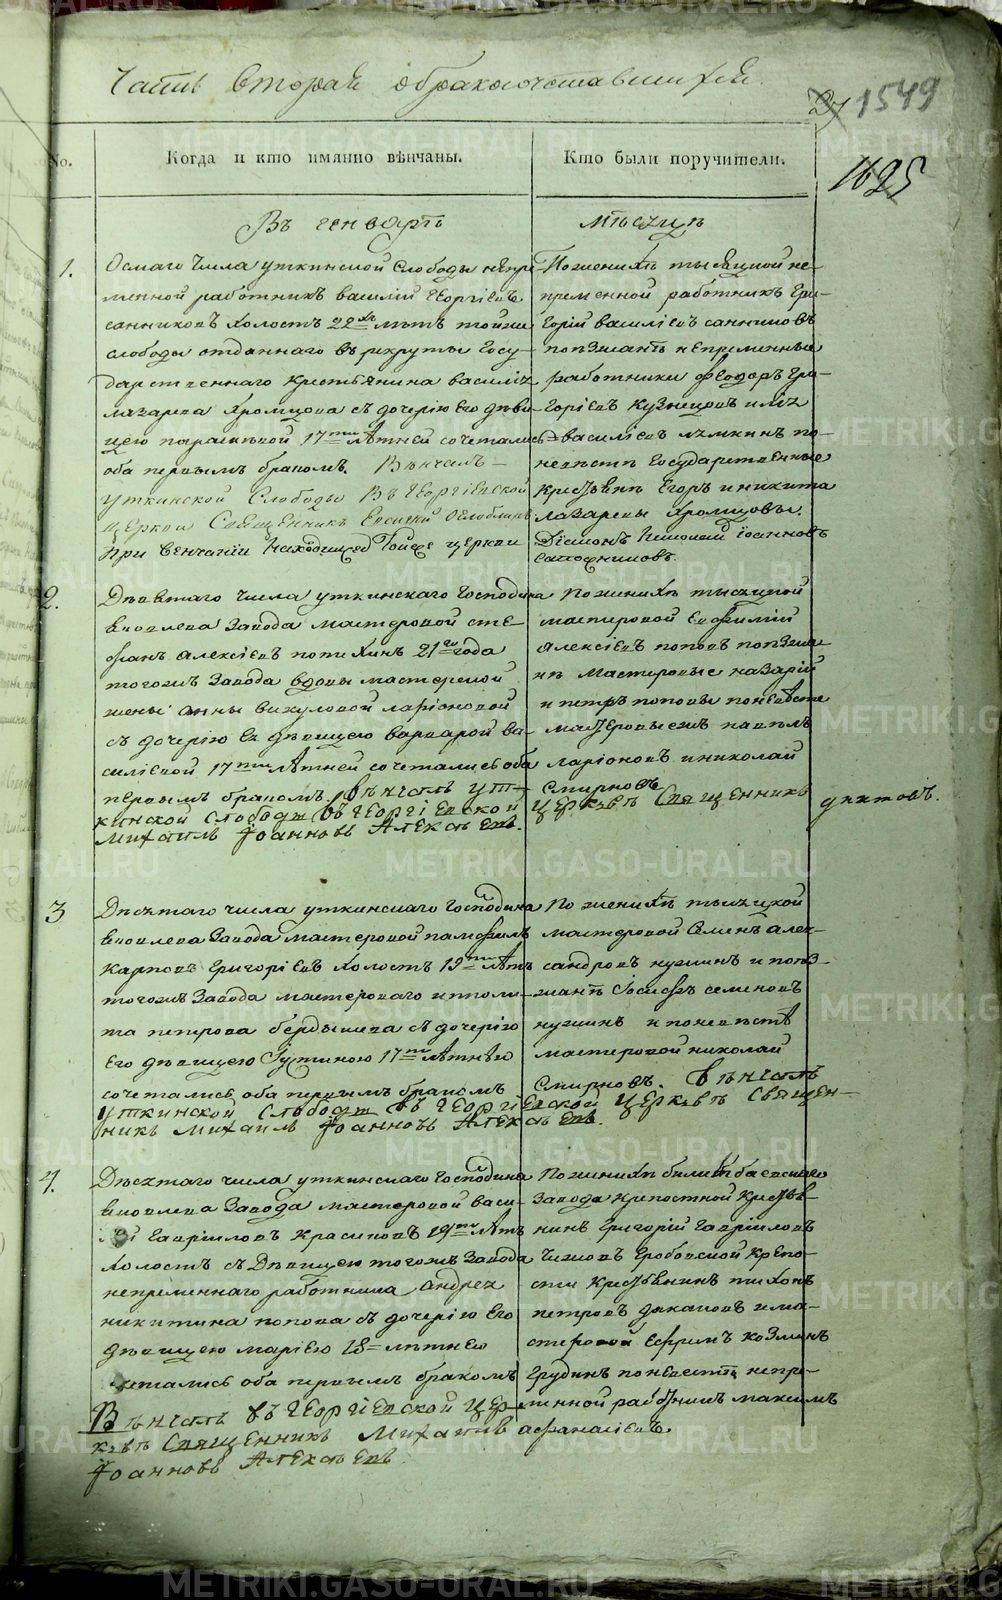 Часть вторая о бракосочетавшихся
27 1549
1625
No.
Когда и кто имянно вѣнчаны.
Кто были поручители.
Въ генварѣ
мѣсяцѣ
1.
Осмаго числа уткинской слободы непре-
менной работникъ василий Георгіевъ
санниковъ холостъ 22хъ лѣтъ тойже
слободы отданнаго в рекруты Госу-
дарственнаго крестьянина василія
лазарева хромцова съ дочерію его деви-
цею параскевой 17ти лѣтней сочетались
оба первымъ бракомъ. Вѣнчалъ
уткинской Слободы Въ Георгіевской
церкви Священникъ
при венчаніи находился тойже церкви
По женихѣ тысяцкой не-
пременной работникъ Гри-
горій василіевъ санниковъ
поезжанѣ непременные
работники Феодоръ Гри-
горіевъ Кузнецовъ илья
василіевъ лямкинъ по
невѣстѣ Государственные
крестьяне Егоръ и никита
лазаревы хромцовы.
Діаконъ Николай Іоанновъ
Сапожниковъ.
2.
Девятаго числа уткинскаго Господина
яковлева завода мастеровой сте-
фанъ алексіевъ потихинъ 21го года
тогожъ завода вдовы мастерской
жены анны викуловой ларіоновой
съ дочерію ея девицею варварой ва-
силіевой 17ти лѣтней сочетались оба
первымъ бракомъ. Вѣнчалъ ут-
кинской слободы въ Георгіевской
Михаилъ Іоанновъ Алексѣевъ.
По женихѣ тысяцкой
мастеровой Евфимій
алексіевъ поповъ поезжа-
нѣ мастеровые назарій
и петръ поповы по невѣсте
мастеровые жъ павелъ
ларіоновъ и николай
Смирновъ.
церквѣ Священникъ
диктовъ.
3
Десятаго числа уткинскаго Господина
яковлева завода мастеровой памфилъ
карповъ Григоріевъ холостъ 19ти лѣтъ
тогожъ завода мастероваго иполи-
та петрова бердышева съ дочерію
его девицею Іустиною 17ти лѣтнею
сочетались оба первымъ бракомъ
По женихѣ тысяцкой
мастеровой Семенъ алек-
сандровъ кузминъ и поез-
жанѣ Іосифъ семеновъ
кузминъ и по невѣстѣ
мастеровой николай
Смирновъ. Вѣнчалъ
уткинской слободы въ Георгіевской церквѣ Священ-
никъ Михаилъ Іоанновъ Алексѣевъ.
4.
Десятаго числа уткинскаго Господина
яковлева завода мастеровой васи-
лій Гавріиловъ Красиковъ 19ти лѣтъ
холостъ съ девицею тогожъ завода
непременнаго работника андрея
никитина попова съ дочерію его
девицею маріею 18 лѣтнею
сочетались оба первымъ бракомъ
Вѣнчалъ въ Георгіевской цер-
квѣ Священникъ Михаилъ
Іоанновъ Алексѣевъ.
По женихѣ
завода крепостной крестья-
нинъ Григорій Гавріиловъ
Чижовъ Гробовской крепо-
сти крестьянинъ тихонъ
петровъ и ма-
стеровой Ефримъ козминъ
Грудинъ по невестѣ непре-
менной работникъ максимъ
афанасіевъ
METRIKI.GASO-URAL.RU